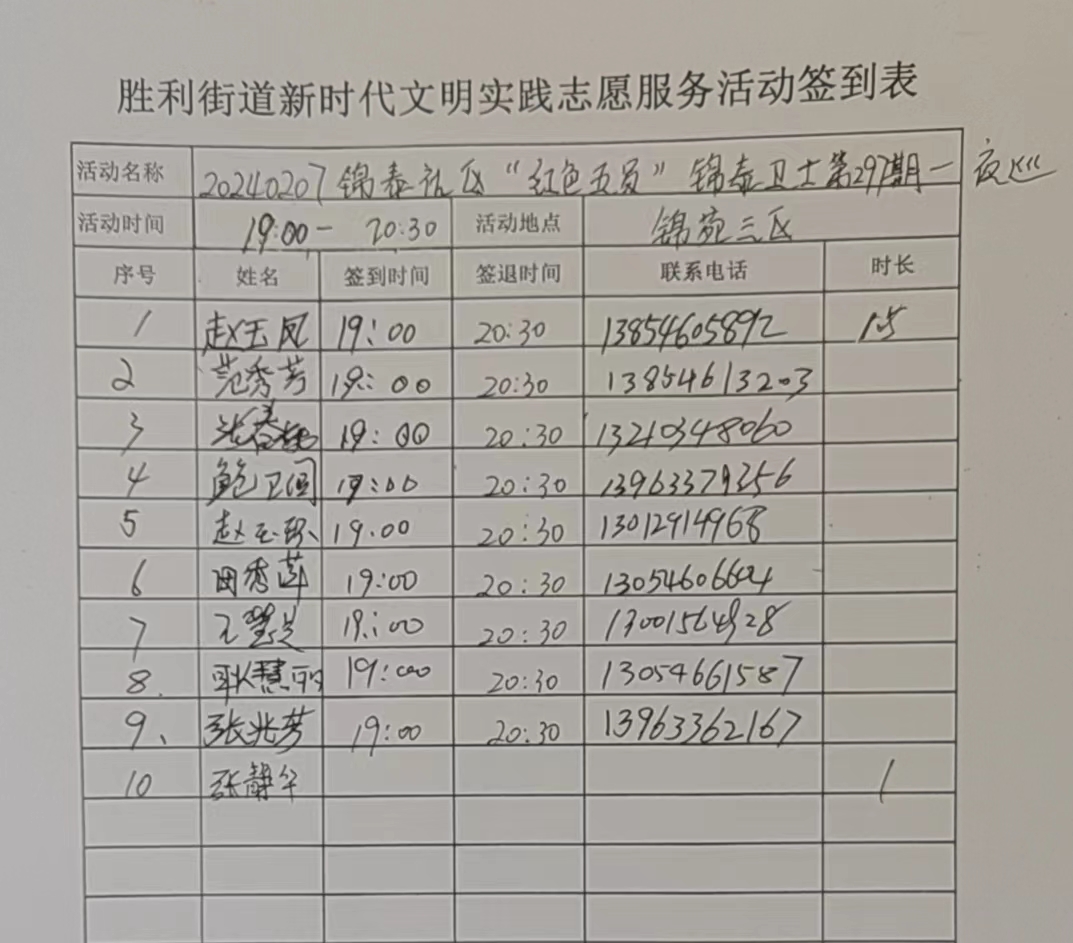 胜利街道新时代文明实践志愿服务活动签到表
活动名称 20240207锦泰社区“红色五员”锦泰卫士第297期一夜巡
活动时间 19:00- 20:30 活动地点 锦苑三区
序号 姓名 签到时间 签退时间 联系电话 时长
1 赵玉凤 19:00 20:30 13854605892 1.5
2 范秀芳 19:00 20:30 13854613203
3 19:00 20:30 13210348060
4 鲍卫国 19:00 20:30 13963379256
5 赵玉珍 19.00 20:30 13012914968
6 田秀莲 19:00 20:30 13054606604
7 王 19:00 20:30 13001564928
8. 耿慧丽 19:00 20:30 13054661587
9、 张兆芳 19:00 20:30 13963362167
10 张静华 1